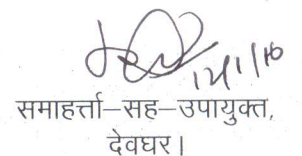 12/1/16
समाहर्त्ता–सह–उपायुक्त,
देवघर।